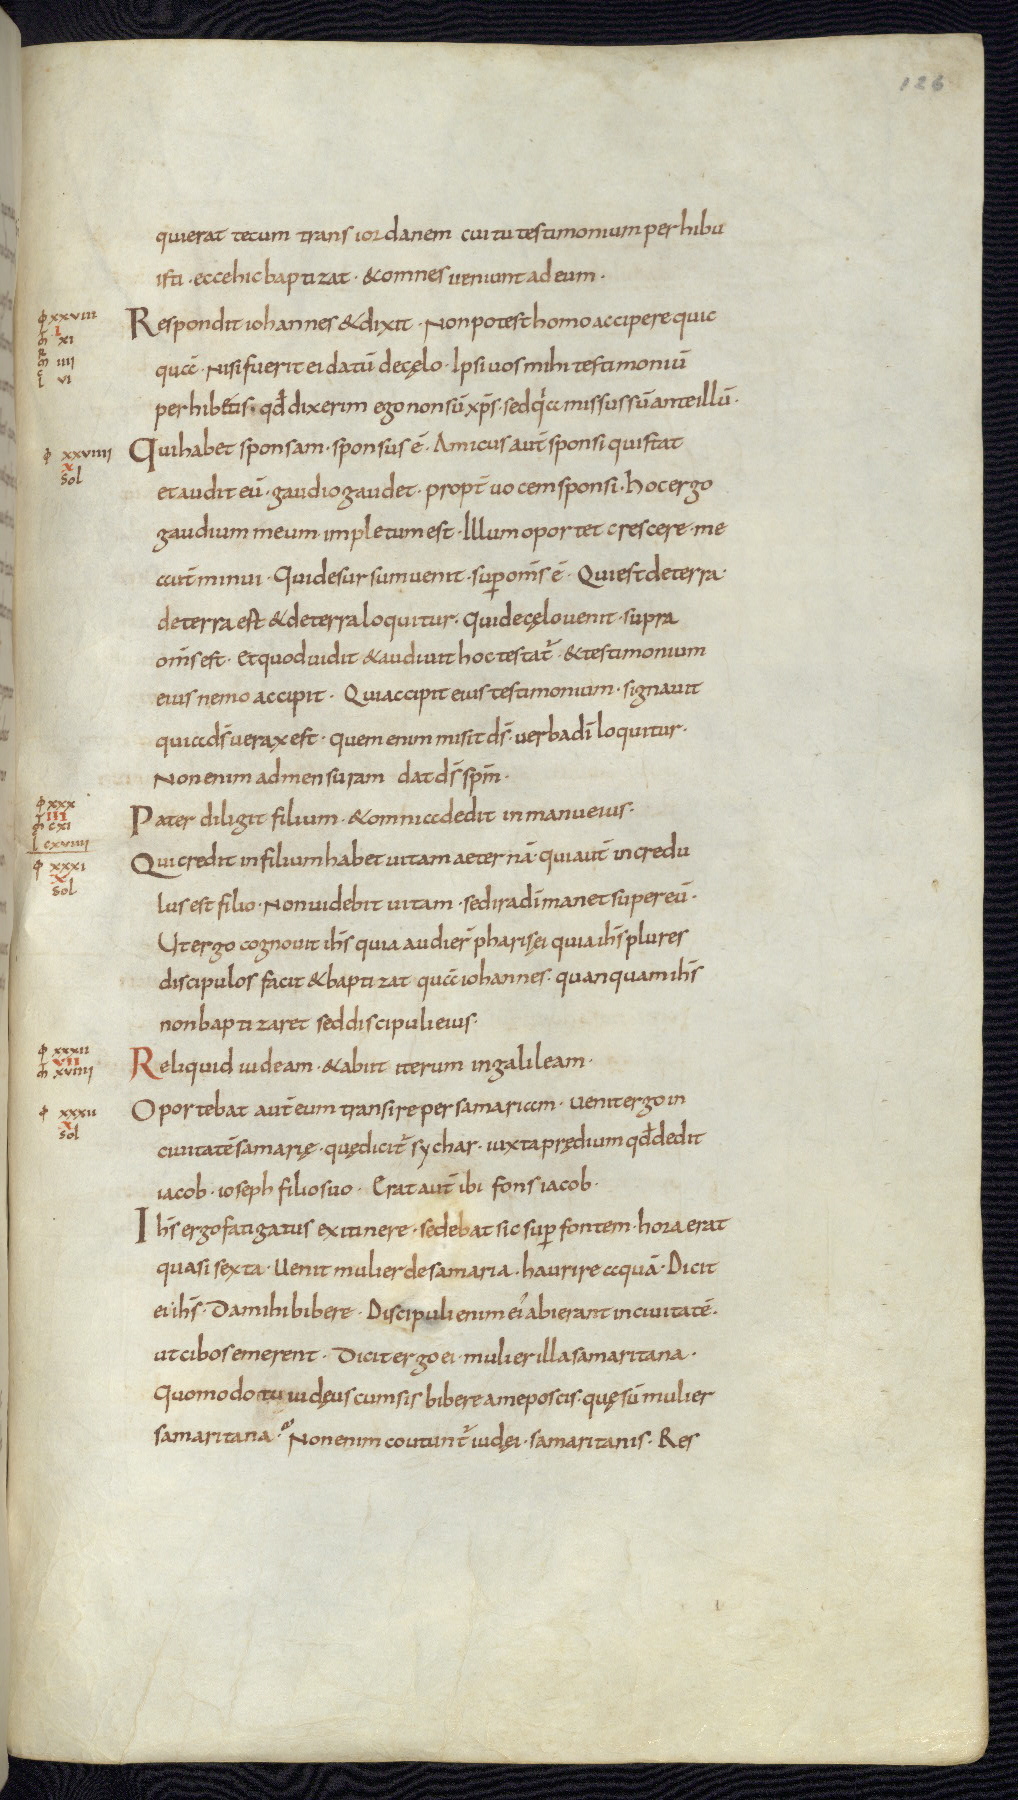 126
quierat tecum trans iordanem cui tu testimonium perhibu
isti · ecce hic baptizat · & omnes ueniunt ad eum ·
φ xxviii
i
m xi
R
m iiii
l vi
Respondit iohannes & dixit · Non potest homo accipere quic
quā · Nisi fuerit ei datū de cęlo · Ipsi uos mihi testimoniū
perhibetis · qđ dixerim ego non sū xp̄s · sed qa missus sū ante illū ·
φ xxviiii
x
sol
Qui habet sponsam · sponsus ē · Amicus aut̄ sponsi qui stat
et audit eū · gaudio gaudet · propt̄ uocem sponsi · hoc ergo
gaudium meum impletum est · Illum oportet crescere · me
aut̄ minui · Qui desursum uenit · sup om̄s ē · Qui est de terra ·
de terra est & de terra loquitur · Qui de cęlo uenit · supra
om̄s est · Et quod uidit & audiuit hoc testat̄ · & testimonium
eius nemo accipit · Qui accipit eius testimonium · signauit
quia d̄s uerax est · Quem enim misit d̄s · uerba dī loquitur ·
Non enim ad mensuram dat d̄s sp̄m ·
φ xxx
iii
m cxi
l cxviiii
Pater diligit filium · & omnia dedit in manu eius ·
φ xxxi
x
sol
Qui credit in filium habet uitam aeternā · qui aut̄ incredu
lus est filio · Non uidebit uitam · sed ira dī manet super eū ·
Ut ergo cognouit ih̄s quia audier̄ pharisęi quia ih̄s plures
discipulos facit & baptizat quā iohannes · quanquam ih̄s
non baptizaret sed discipuli eius ·
φ xxxii
vii
m xviiii
Reliquid iudeam · & abiit iterum in galileam ·
φ xxxii
x
sol
Oportebat aut̄ eum transire per samariam · Uenit ergo in
ciuitatē samarię · quę dicit̄ sychar · iuxta prędium qđ dedit
iacob · ioseph filio suo · Erat aut̄ ibi fons iacob ·
Ih̄s ergo fatigatus ex itinere · sedebat sic sup fontem · hora erat
quasi sexta · Uenit mulier de samaria · haurire aquā · Dicit
ei ih̄s · Da mihi bibere · Discipuli enim ei' abierant in ciuitatē ·
ut cibos emerent · Dicit ergo ei · mulier illa samaritana ·
Quomodo tu iudęus cum sis bibere a me poscis · quę sū mulier
samaritana · Non enim coutunt̄ iudęi · samaritanis · Res